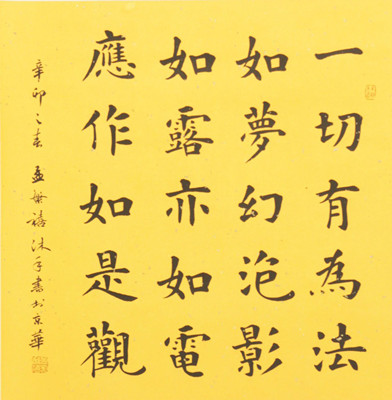 一切有為法
如夢幻泡影
如露亦如電
應作如是觀
辛卯之春 孟繁禧沐手書於京華